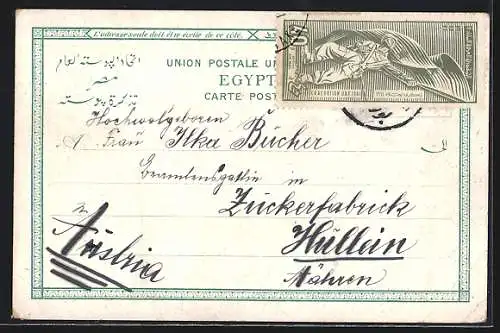 L'adresse seule doit être écrite de ce côté.
اتحاد البوسته العام
مصر
تذكرة بوسته
UNION POSTALE UN
EGYPT
CARTE POST
Hochwolgeboren
Frau Ilka Bücher
Beamtensgattin in
Zuckerfabrick
Hullein
Mähren
Austria